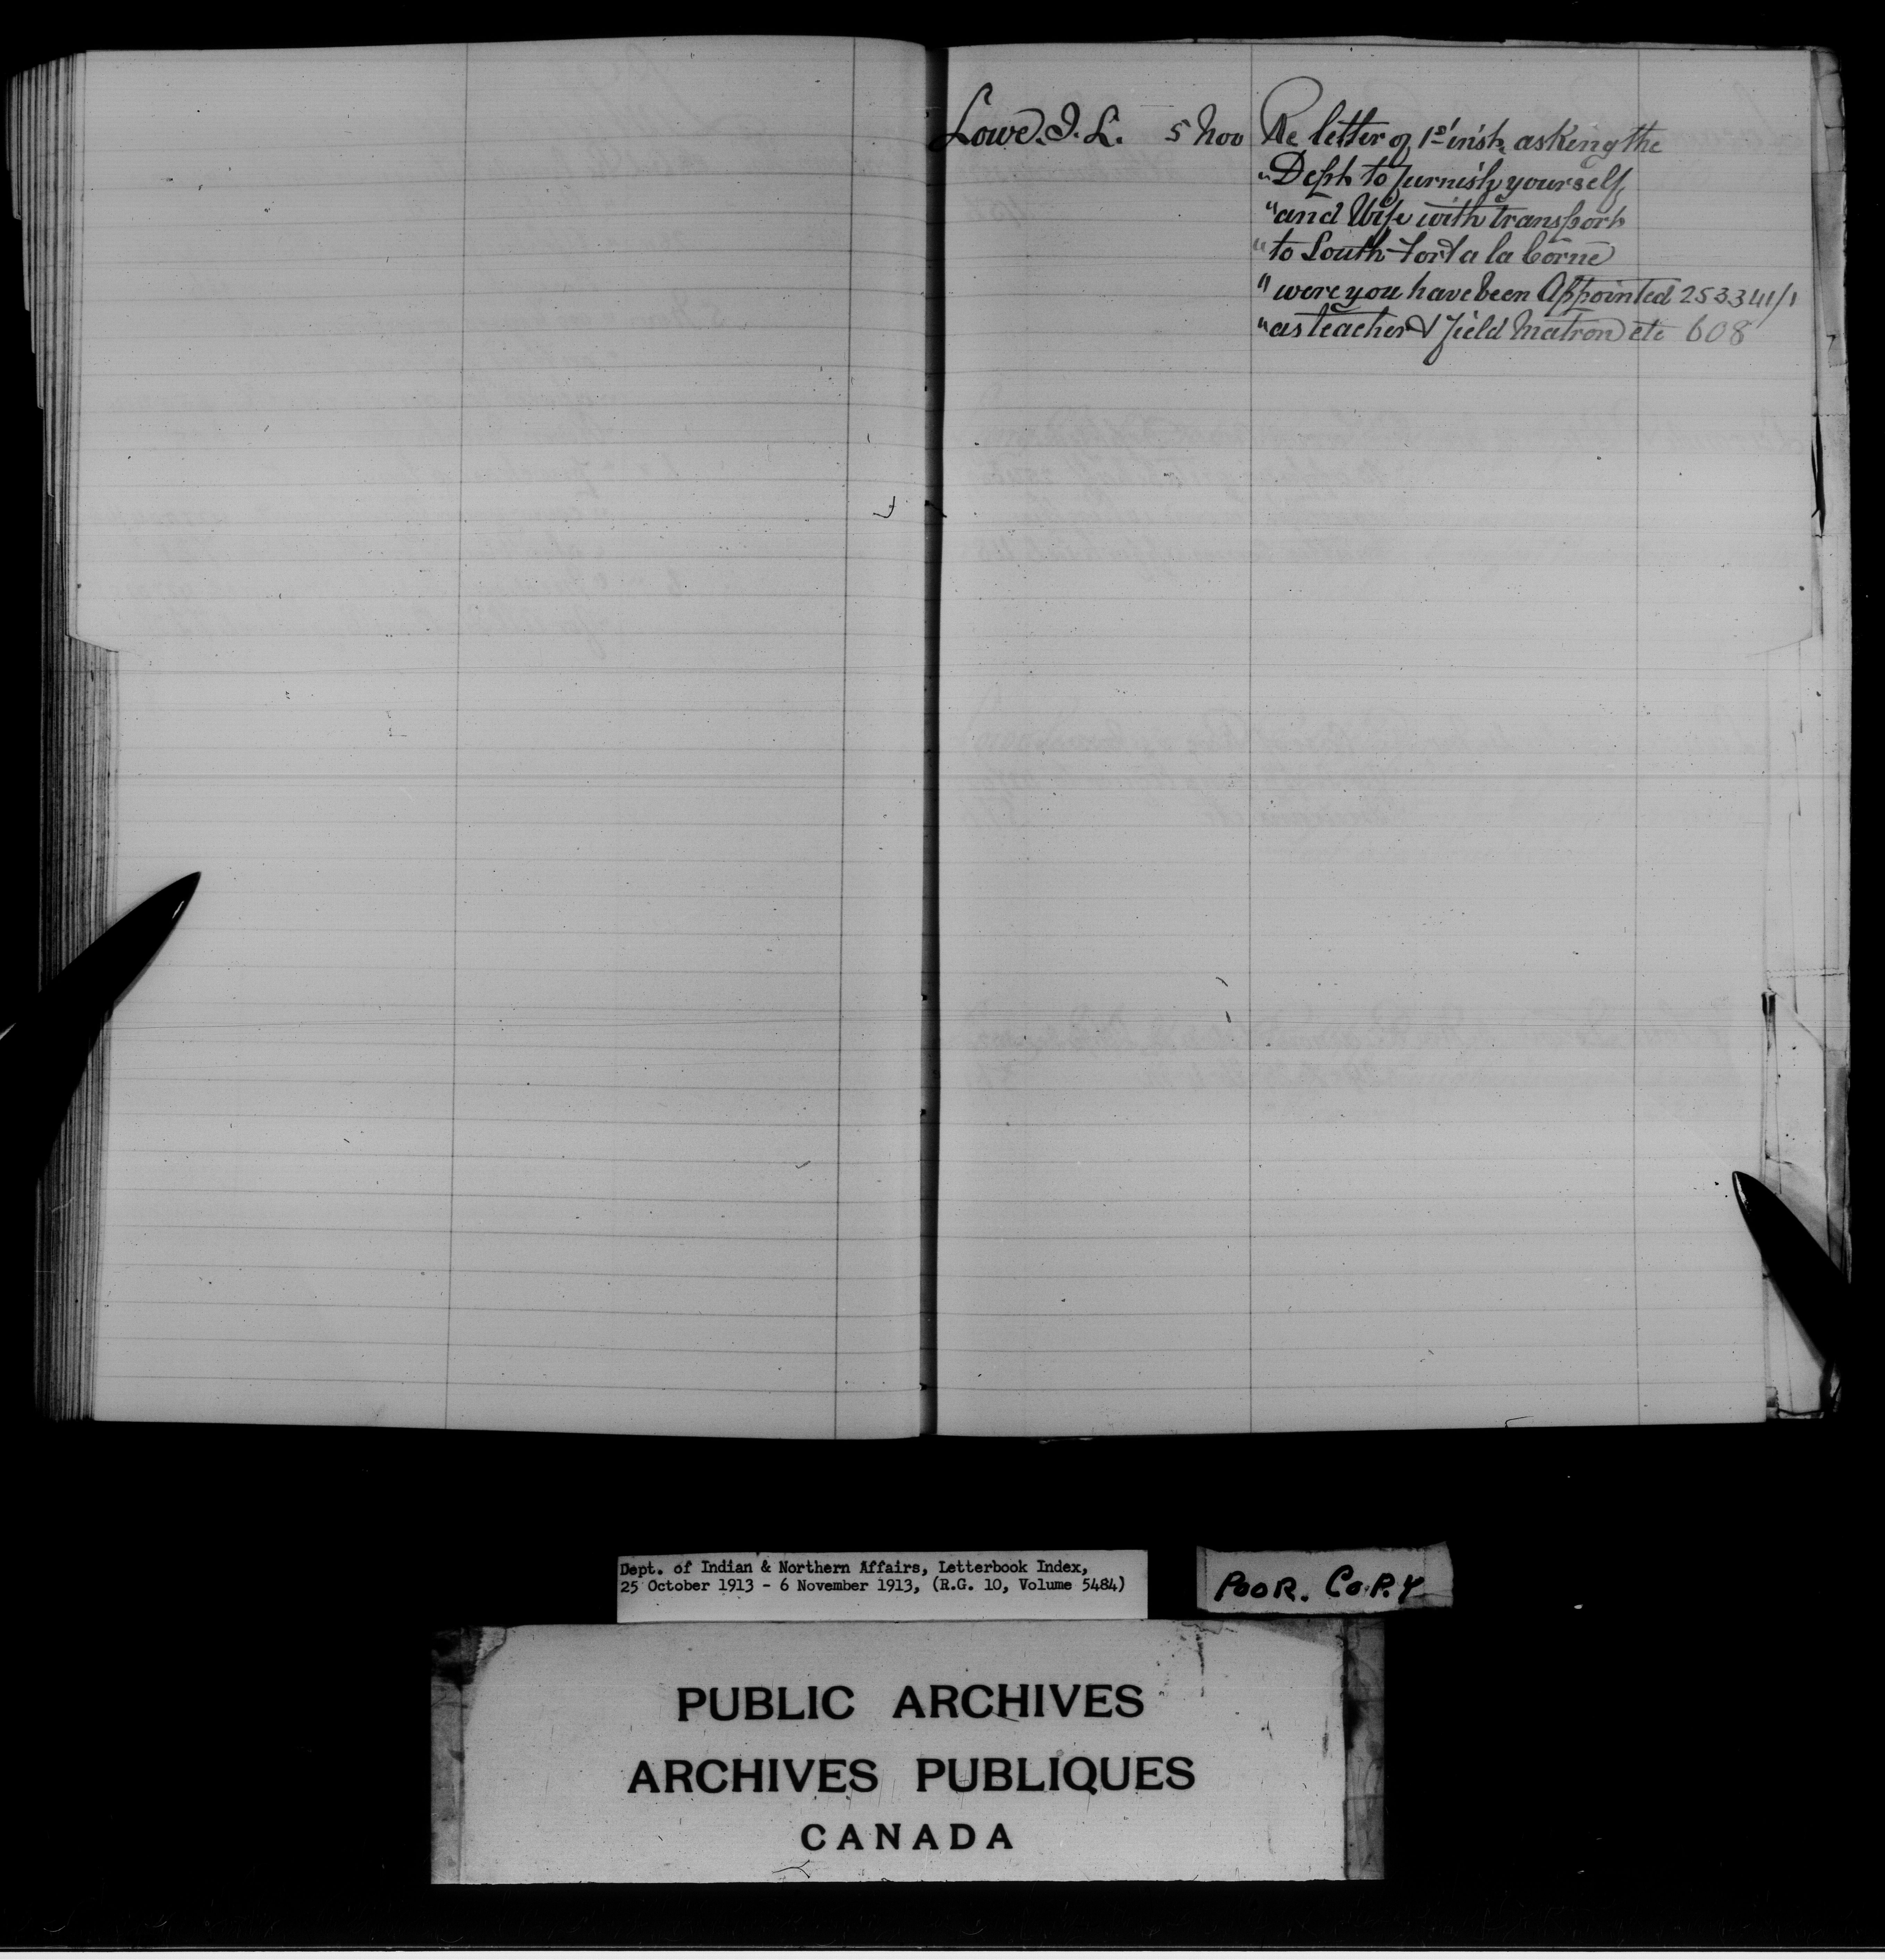 Lowe. I. L. 5 Nov Re letter of 1st inst, asking the
" Dept to furnish yourself
" and Wife with transport
" to South Fort a la Corne
" were you have been Appointed 253341/1
" as teacher & field Matron etc 608
Dept. of Indian & Northern Affairs, Letterbook Index,
25 October 1913 - 6 November 1913, (R.G. 10, Volume 5484)
POOR. COPY
PUBLIC ARCHIVES
ARCHIVES PUBLIQUES
CANADA